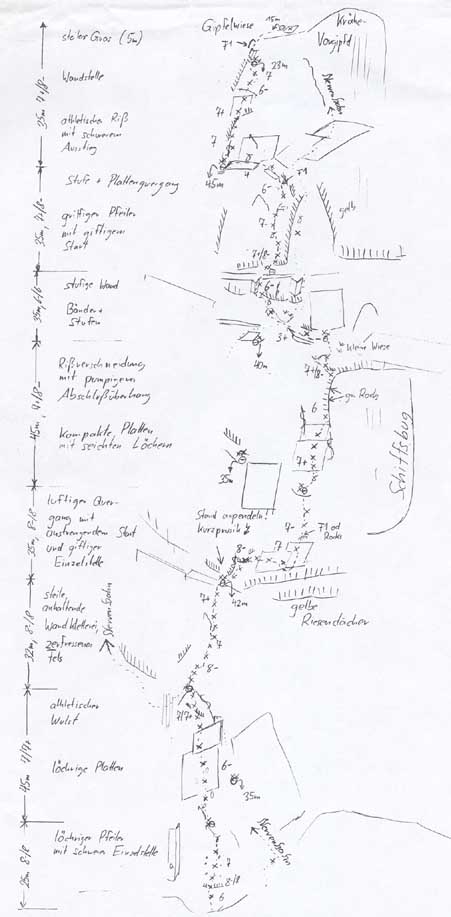 Gipfelwiese
15m
Krähe-
Vorgipfel
steiles Gras (5m)
71
23m
7
6-
Wandstelle
Nervenbahn
7+
athletischer Riß
mit schwerem
Ausstieg
7
45m
4
Stufe + Plattenquergang
6-
gelb
griffiger Pfeiler
mit giftigem
Start
7-
7+/8-
stufige Wand
6-
Bänder +
Stufen
3+
40m
kleine Wiese
Rißverschneidung
mit pumpigem
Abschlußüberhang
7+/8-
6
Schiffsbug
kompakte Platten
mit seichten Löchern
7+
35m
luftiger Quer-
gang mit
anstrengendem Start
und giftiger
Einzelstelle
Stand anpendeln!
Kurzprusik
7-
8-
7
42m
gelbe
Riesendächer
steile,
anhaltende
Wandkletterei,
zerfressener
Fels
Nervenbahn
7+
8-
athletischer
Wulst
7/7+
löchrige Platten
6-
35m
Nervenbahn
löchriger Pfeiler
mit schwerer Einzelstelle
7
8-/8
6
35m 7+/8-
35m, 7+/8-
45m, 7+/8-
25m, 8-/8
32m, 8-/8
45m 7/7+
28m 8-/8